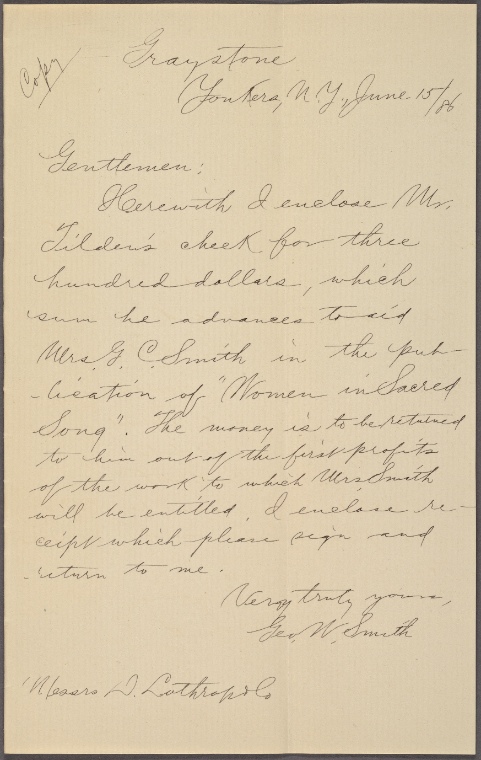 Copy
Graystone
Yonkers, N.Y., June 15/86
Gentlemen:
Herewith I enclose Mr.
Tilden's check for three
hundred dollars, which
sum he advances to aid
Mrs. G. C. Smith in the pub-
-lication of "Women in Sacred
Song". The money is to be returned
to him out of the first profits
of the work to which Mrs Smith
will be entitled. I enclose re-
ceipt which please sign and
return to me.
Very truly yours,
Geo. W. Smith
Messrs D. Lothrop & Co